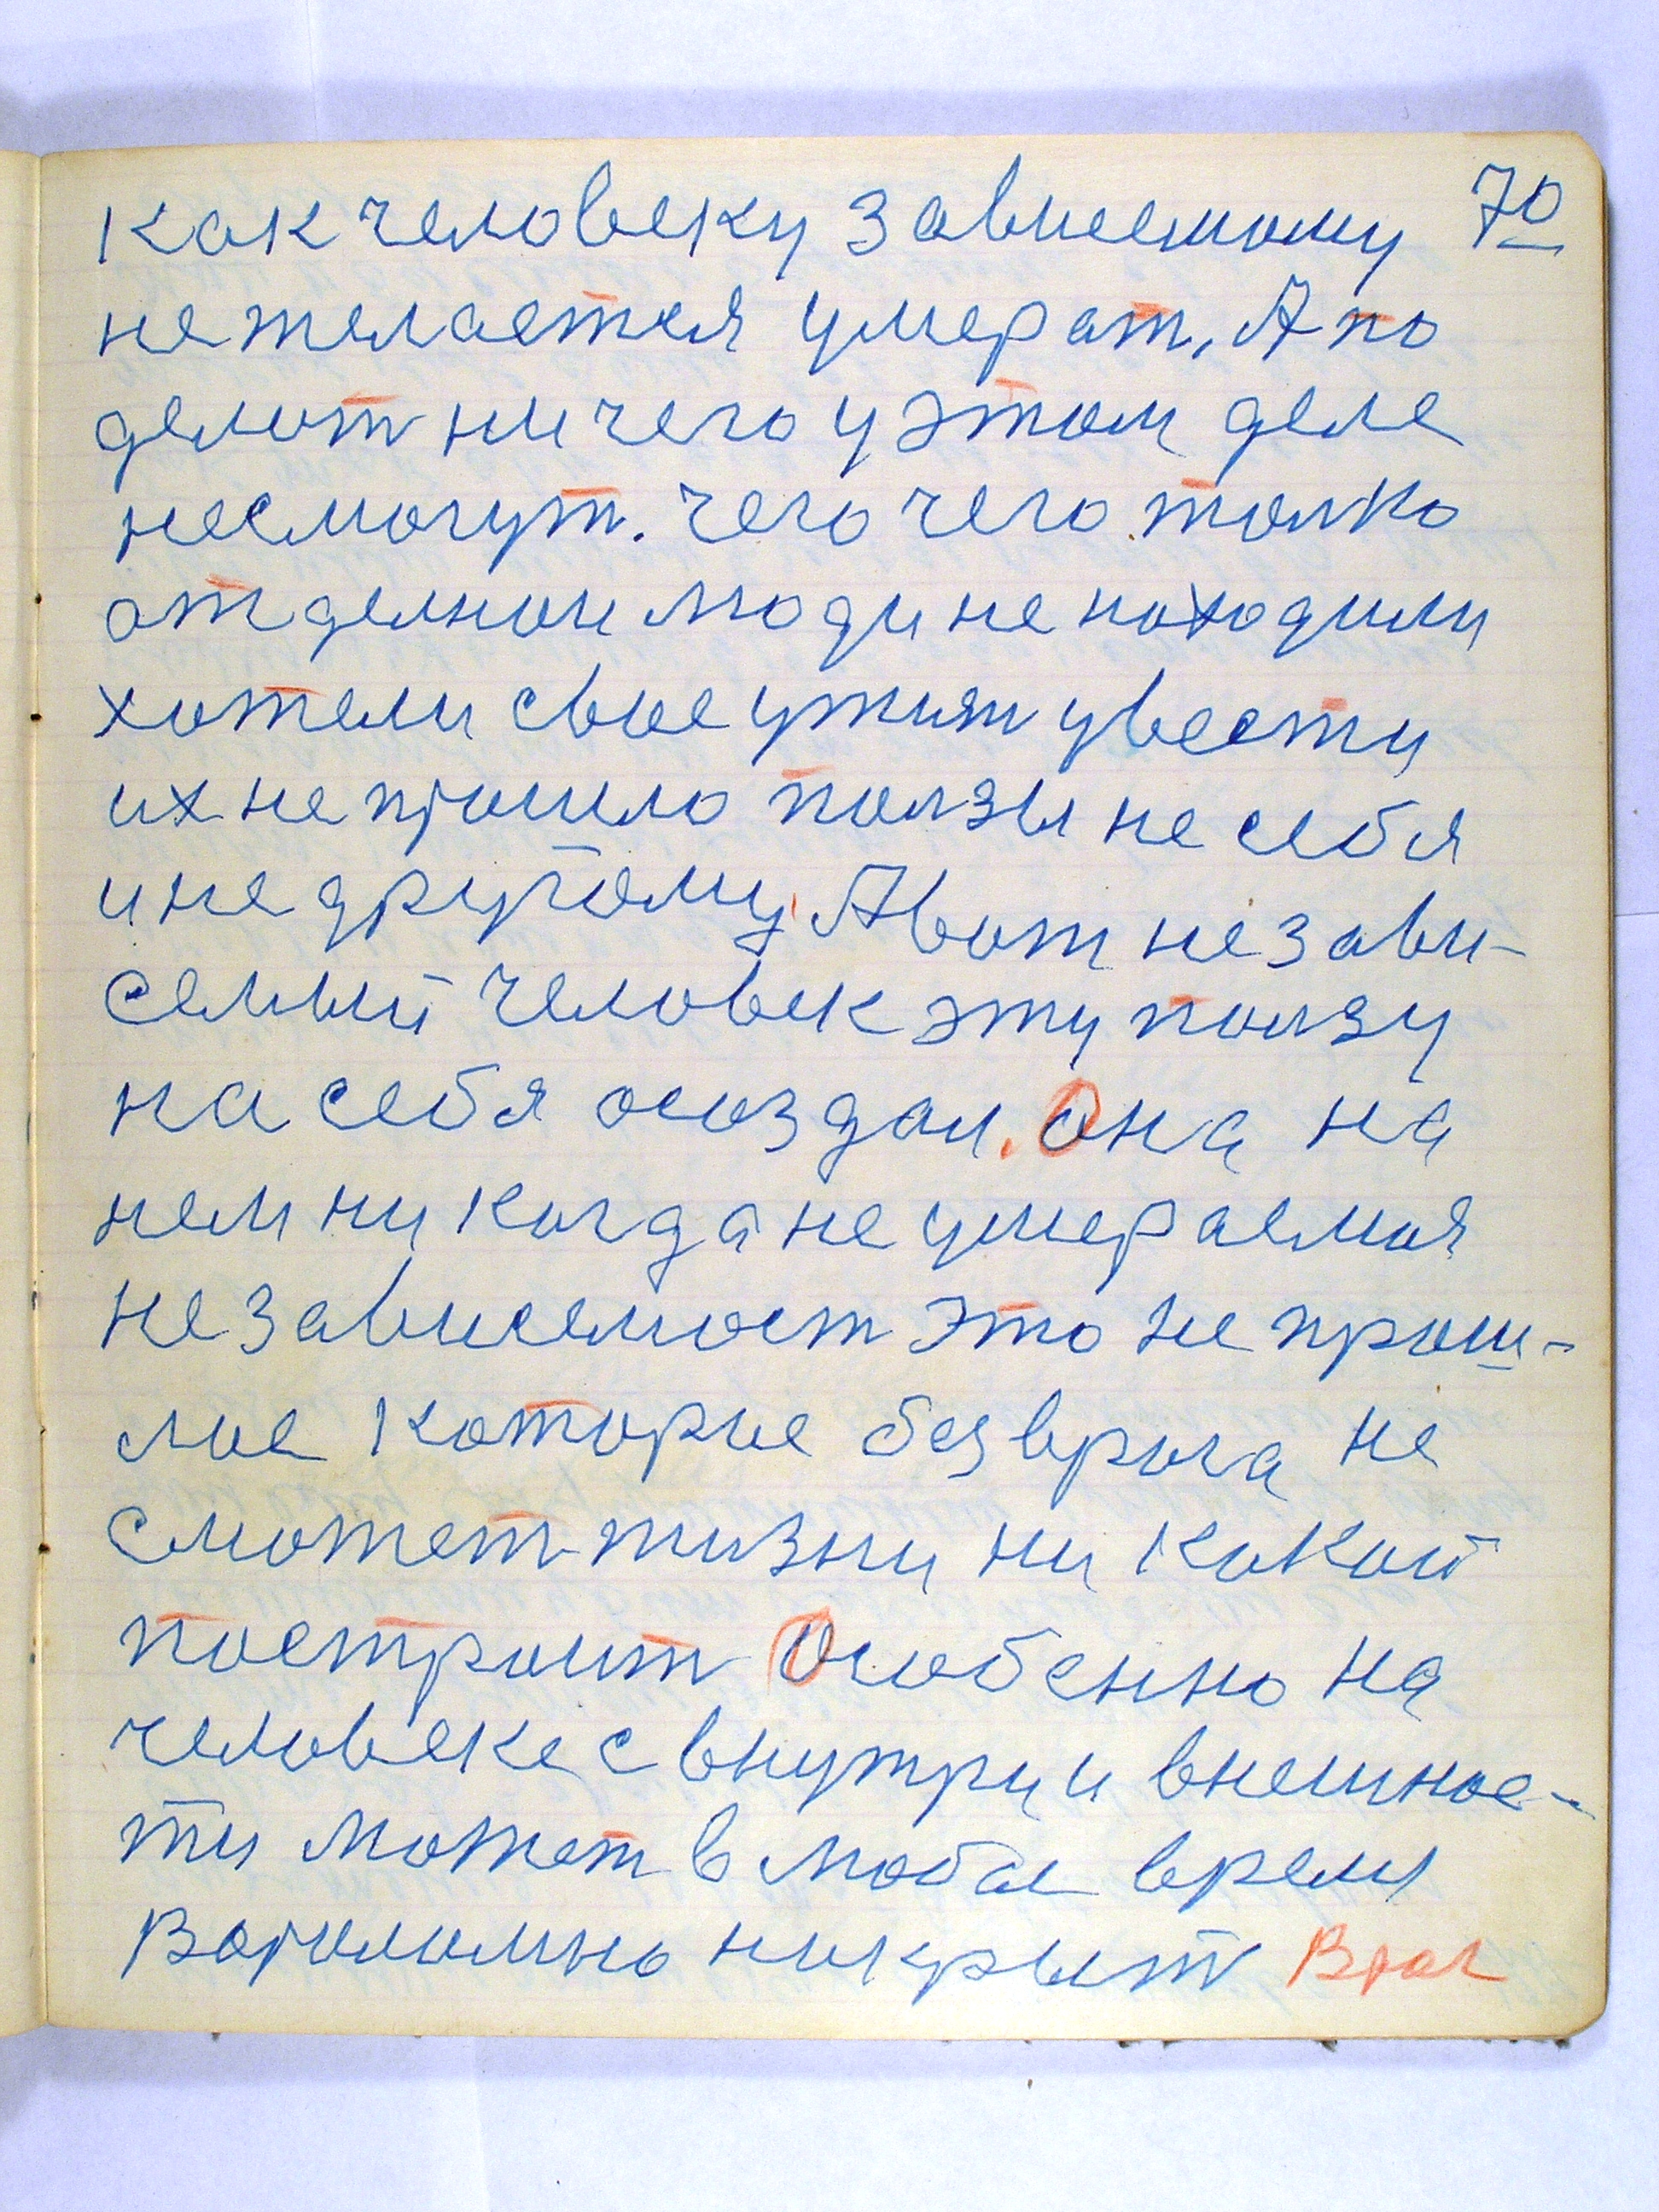 как человеку зависемому 70
не желается умерат, А по
делот ни чего у этом деле
несмогут. чего чего толко
отделнои люди не находили
хотели свое ужизн увести
их не прошло ползы не себя
и не другому, А вот незави-
семый человек эту ползу
на себя осоздал. Она на
нем ни когда не умераемоя
независемост это не прош-
лое которые без врага не
сможет жизни ни какой
построит Особенно на
человеке с внутри и внешнос-
ти может в любое время
никрыт Враг